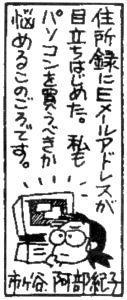 住所録にEメールアドレスが
目立ちはじめた。私も
パソコンを買うべきか
悩めるこのごろです。
市ヶ谷 阿部紀子